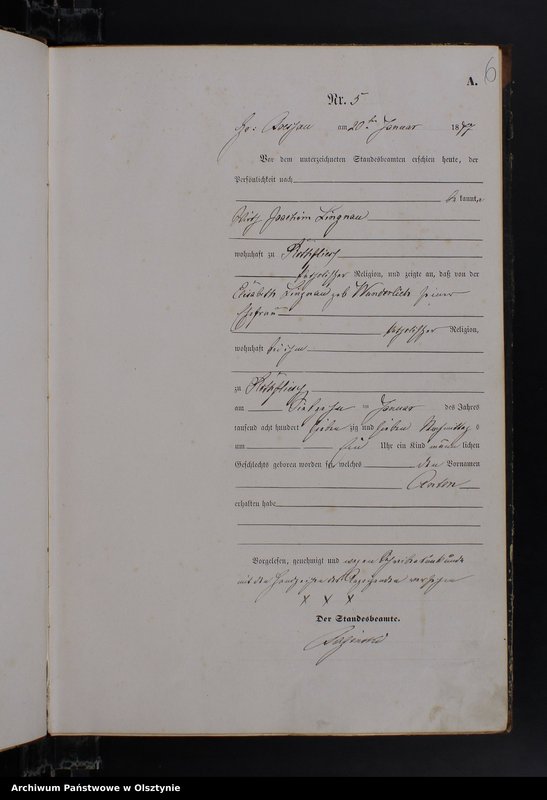 6
A.
Nr. 5
am 20ten Januar 1877
Vor dem unterzeichneten Standesbeamten erschien heute, der
Persönlichkeit nach
be kannt,
Wirth Joachim Lingnau
wohnhaft zu Rothfließ
katholischer Religion, und zeigte an, daß von der
Elisabeth Lingnau geb Wunderlich seiner
Ehefrau
katholischer Religion,
wohnhaft bei ihm
zu Rothfließ
am Siebzehn ten Januar des Jahres
tausend acht hundert sieben zig und sieben Nachmittag s
um fünf Uhr ein Kind männ lichen
Geschlechts geboren worden sei, welches den Vornamen
Anton
erhalten habe
Vorgelesen, genehmigt und wegen Schreibensunkunde
mit den Handzeichen des Anzeigenden versehen
x x x
Der Standesbeamte.
Archiwum Państwowe w Olsztynie